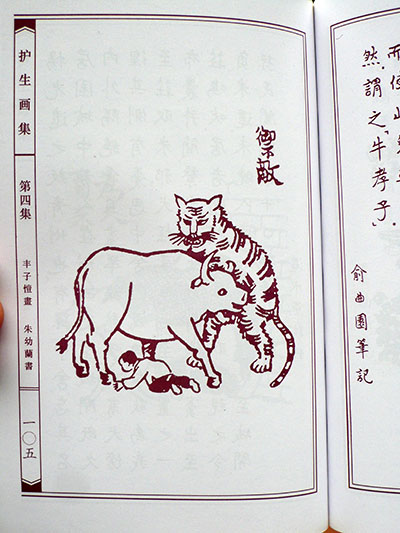 然，謂之「牛孝子」
俞曲園筆記
禦敵
护生画集
第四集
丰子愷畫　朱幼蘭書
一〇五